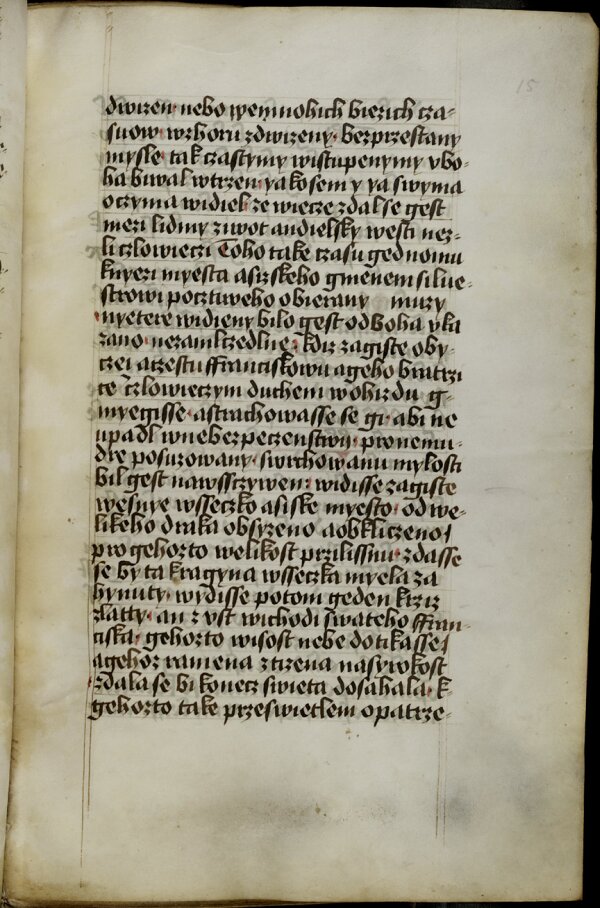 15
dwizen· nebo wemnohich biezich cza-
suow· wzhoru zdwizeny· bezprzestany
mysle· tak czastymy wistupenymy vbo-
ha biwal wtrzen· yakosem y ya swyma
oczyma widiel· ze wiecze zdal se gest
mezi lidmy ziwot andielsky westi nez-
li czlowieczi Toho take czasu gednomu
knyezi myesta asizskeho gmenem silue-
strowi pocztiweho obierany muzy
nyetere widieny bilo gest od Boha vka
zano· nezamlczedlne· kdiz zagiste oby-
czei a czestu ffranciskowu a geho bratrzi
te czlowieczym duchem wohizdu g-
myegisse· a strachowasse se gi· abi ne
upadl wnebezpeczenstwu· pronemu-
dre posuzowany· swrchowanu mylosti
bil gest nawssczywen: widisse zagiste
wesnye wsseczko asiske myesto· od we-
likeho draka obsyzeno a obkliczeno/
pro gehozto welikost przilissnu· zdasse
se by ta kragyna wsseczka myela za
hynuty· wydisse potom geden krziz
zlatty· an z vst wichodi swateho ffran-
ciska· gehozto wisost nebe dotikasse/
a gehoz ramena ztrzena nasyrokost
zdala se bi konecz swieta dosahala· k-
gehozto take przeswietlem opatrze-